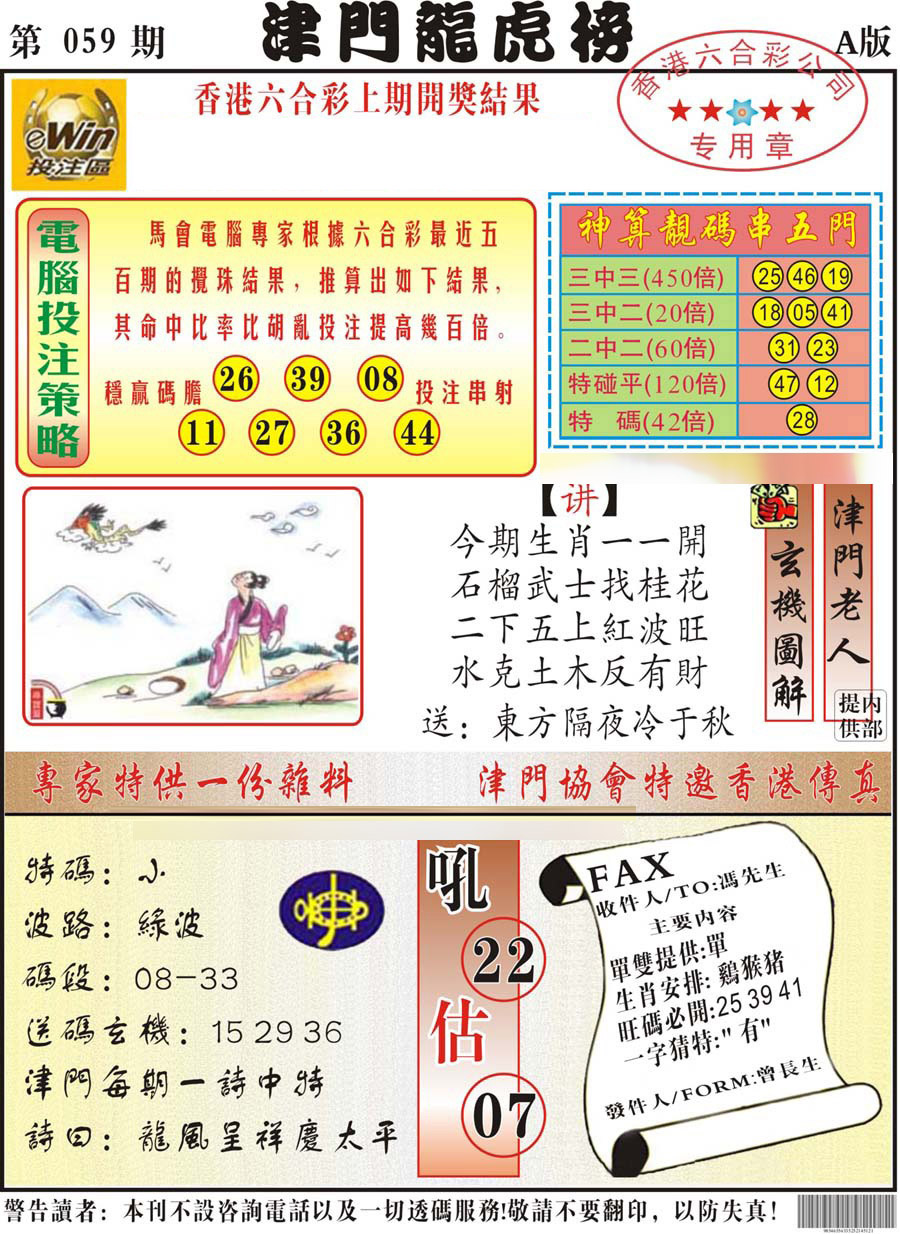 第 059 期
津門龍虎榜
A版
eWin
投注區
香港六合彩上期開獎結果
香港六合彩公司
专用章
電腦投注策略
馬會電腦專家根據六合彩最近五
百期的攪珠結果，推算出如下結果，
其命中比率比胡亂投注提高幾百倍。
穩贏碼膽 26 39 08 投注串射
11 27 36 44
神算靚碼串五門
三中三(450倍) 25 46 19
三中二(20倍) 18 05 41
二中二(60倍) 31 23
特碰平(120倍) 47 12
特 碼(42倍) 28
【讲】
今期生肖一一開
石榴武士找桂花
二下五上紅波旺
水克土木反有財
送：東方隔夜冷于秋
玄機圖解
津門老人
提供
内部
專家特供一份雜料
津門協會特邀香港傳真
特碼：小
波路：綠波
碼段：08-33
送碼玄機：15 29 36
津門每期一詩中特
詩曰：龍風呈祥慶太平
吼
22
估
07
FAX
收件人/TO:馮先生
主要内容
單雙提供:單
生肖安排: 鷄猴猪
旺碼必開:25 39 41
一字猜特:" 有"
發件人/FORM:曾長生
警告讀者：本刊不設咨詢電話以及一切透碼服務!敬請不要翻印，以防失真!